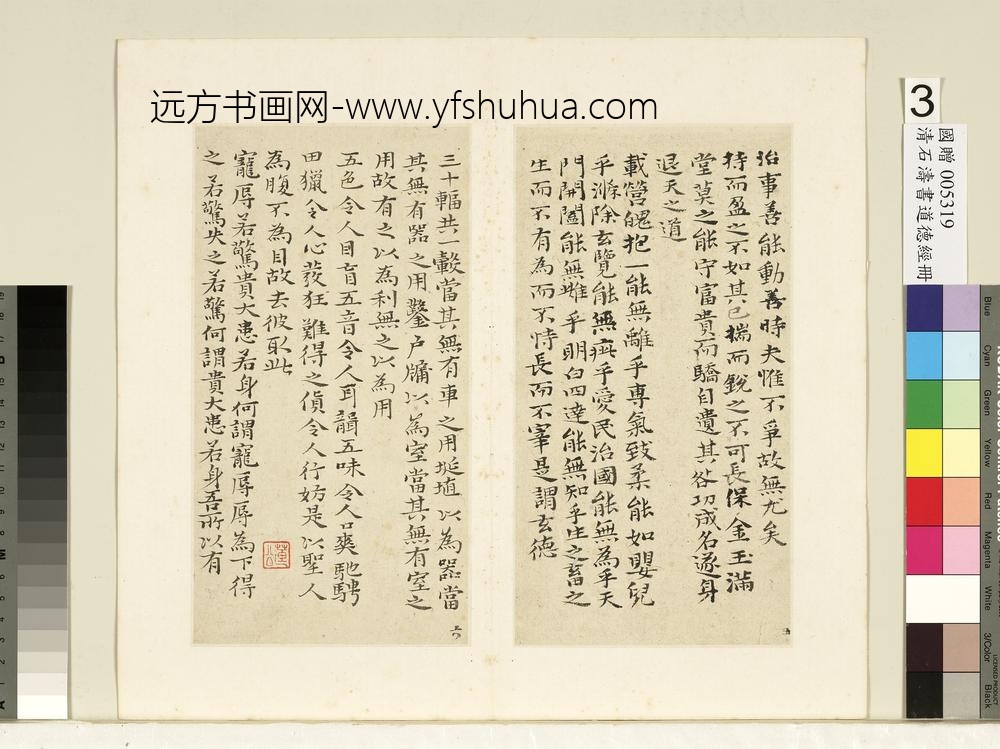 远方书画网-www.yfshuhua.com
治事善能動善時夫惟不爭故無尤矣
持而盈之不如其已揣而銳之不可長保金玉滿
堂莫之能守富貴而驕自遺其咎功成名遂身
退天之道
載營魄抱一能無離乎專氣致柔能如嬰兒
乎滌除玄覽能無疵乎愛民治國能無為乎天
門開闔能無雌乎明白四達能無知乎生之畜之
生而不有為而不恃長而不宰是謂玄德
五
三十輻共一轂當其無有車之用埏埴以為器當
其無有器之用鑿户牖以為室當其無有室之
用故有之以為利無之以為用
五色令人目盲五音令人耳聾五味令人口爽馳騁
田獵令人心發狂難得之貨令人行妨是以聖人
為腹不為目故去彼取此
寵辱若驚貴大患若身何謂寵辱辱為下得
之若驚失之若驚何謂貴大患若身吾所以有
3
國贈 005319
清石濤書道德經冊
Blue
Cyan
Green
Yellow
Red
Magenta
White
3/Color
Black